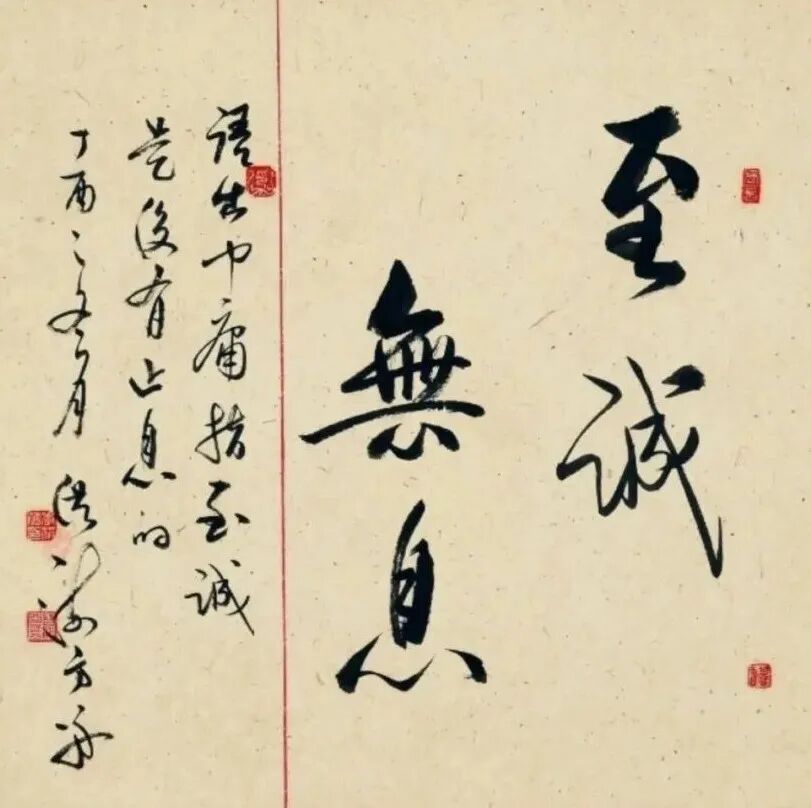 至誠
無息
語出中庸指至誠
是没有止息的
丁酉之冬月